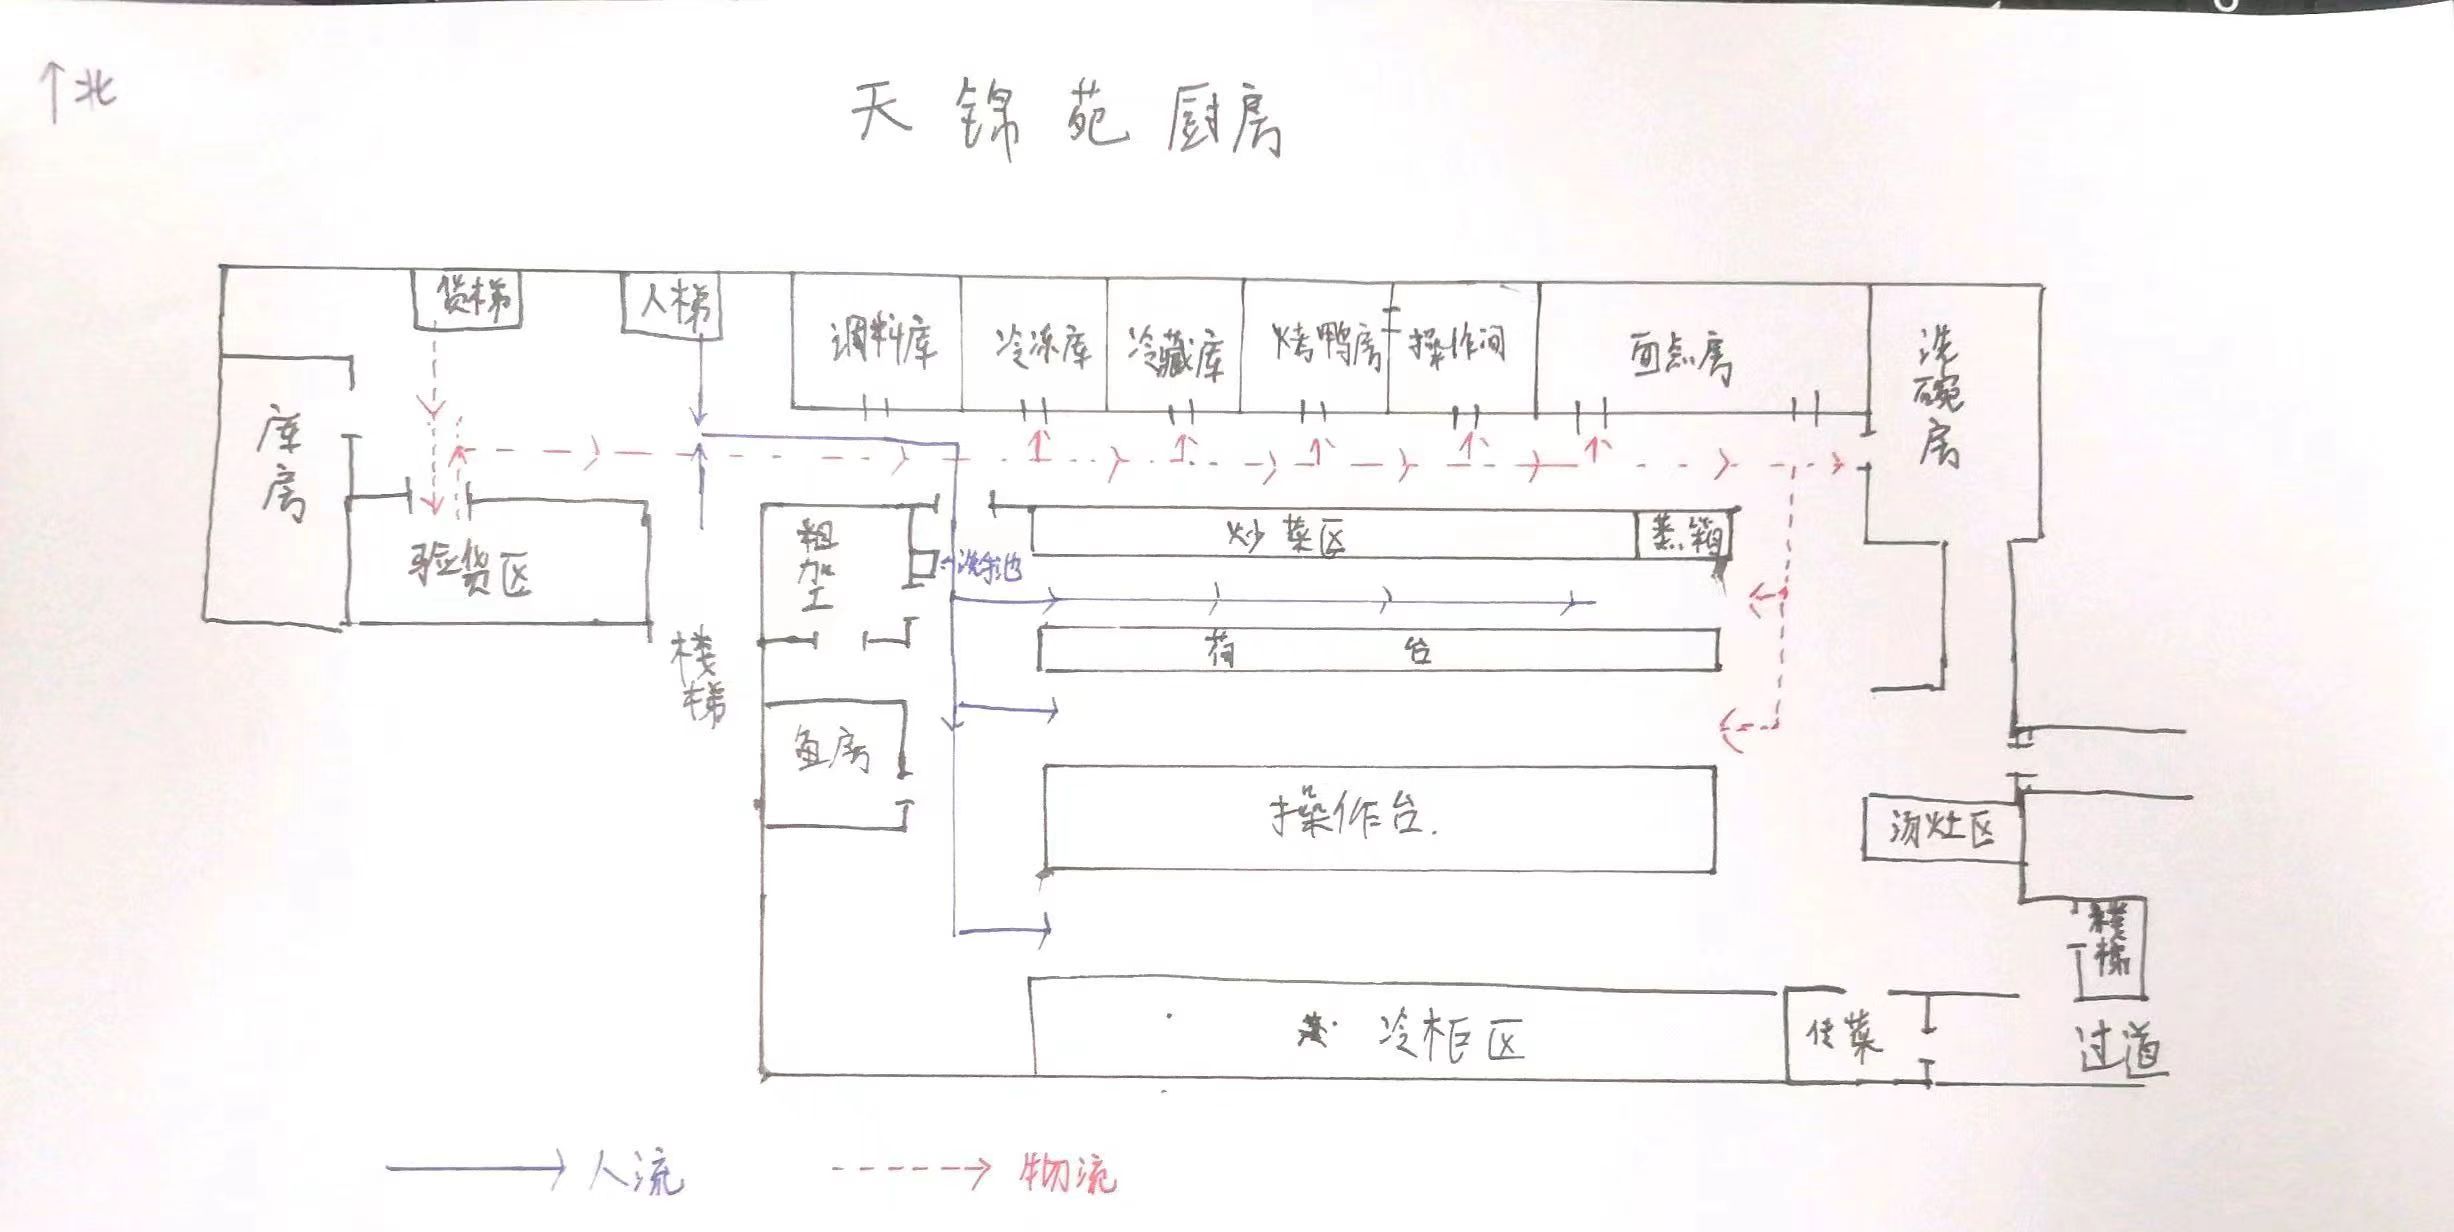 ↑北
天锦苑厨房
货梯
人梯
调料库
冷冻库
冷藏库
烤鸭房
操作间
面点房
洗碗房
库房
验货区
楼梯
粗加工
洗手池
炒菜区
蒸箱
荷台
鱼房
操作台.
汤灶区
楼梯
冷柜区
传菜
过道
人流
物流